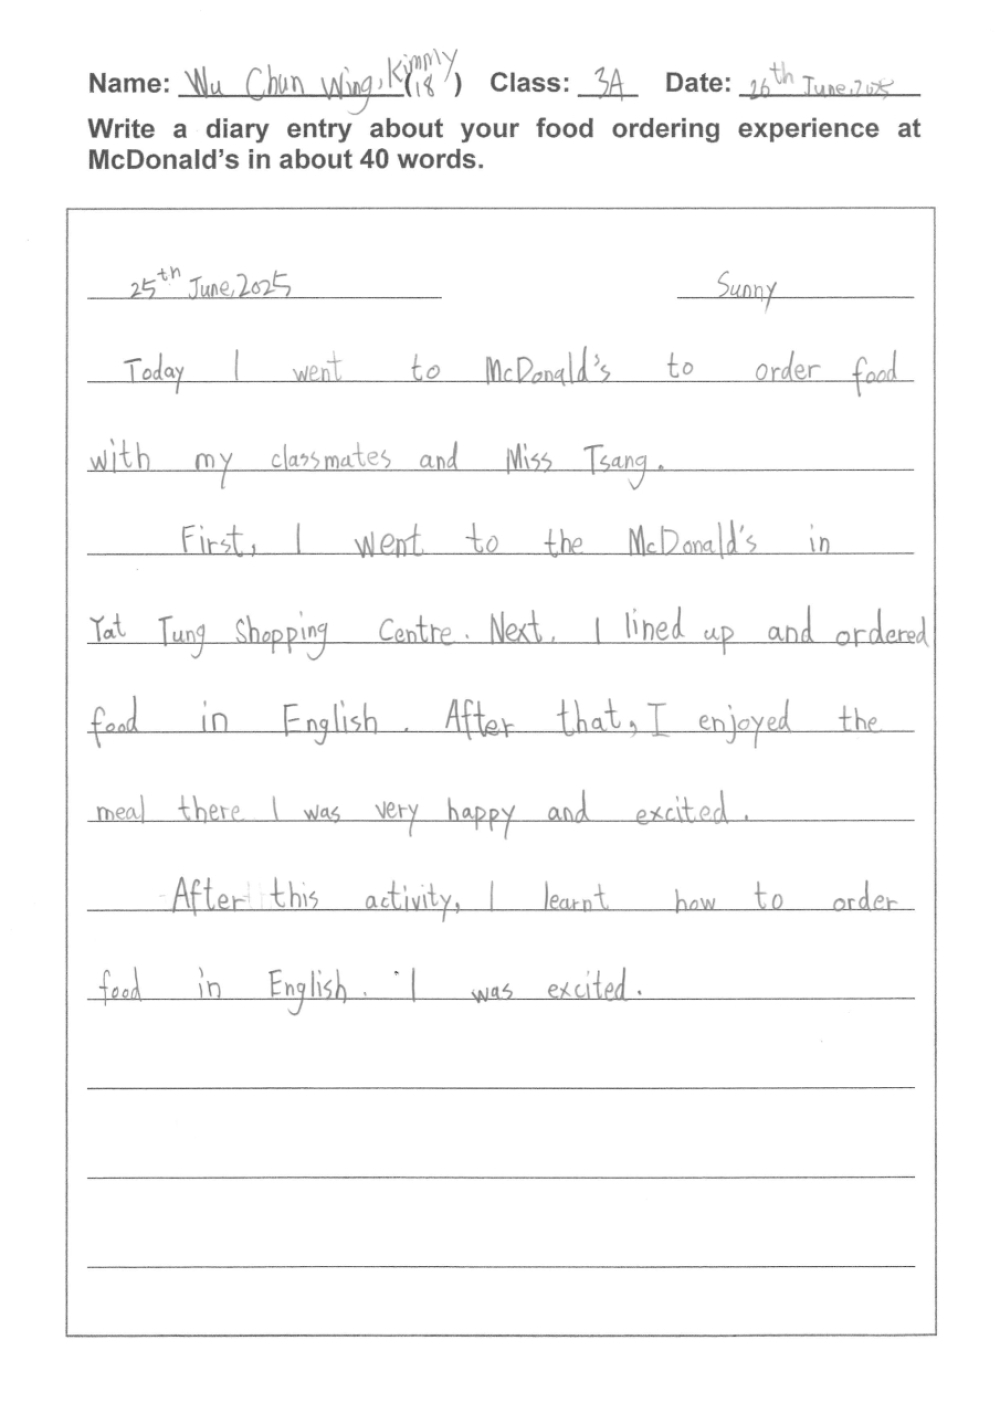 Name: Wu Chun Wing, Kimmy (18) Class: 3A Date: 26th June, 2025
Write a diary entry about your food ordering experience at
McDonald's in about 40 words.
25th June, 2025 Sunny
Today I went to McDonald's to order food
with my classmates and Miss Tsang.
First, I went to the McDonald's in
Yat Tung Shopping Centre. Next, I lined up and ordered
food in English. After that, I enjoyed the
meal there I was very happy and excited.
After this activity, I learnt how to order
food in English. I was excited.